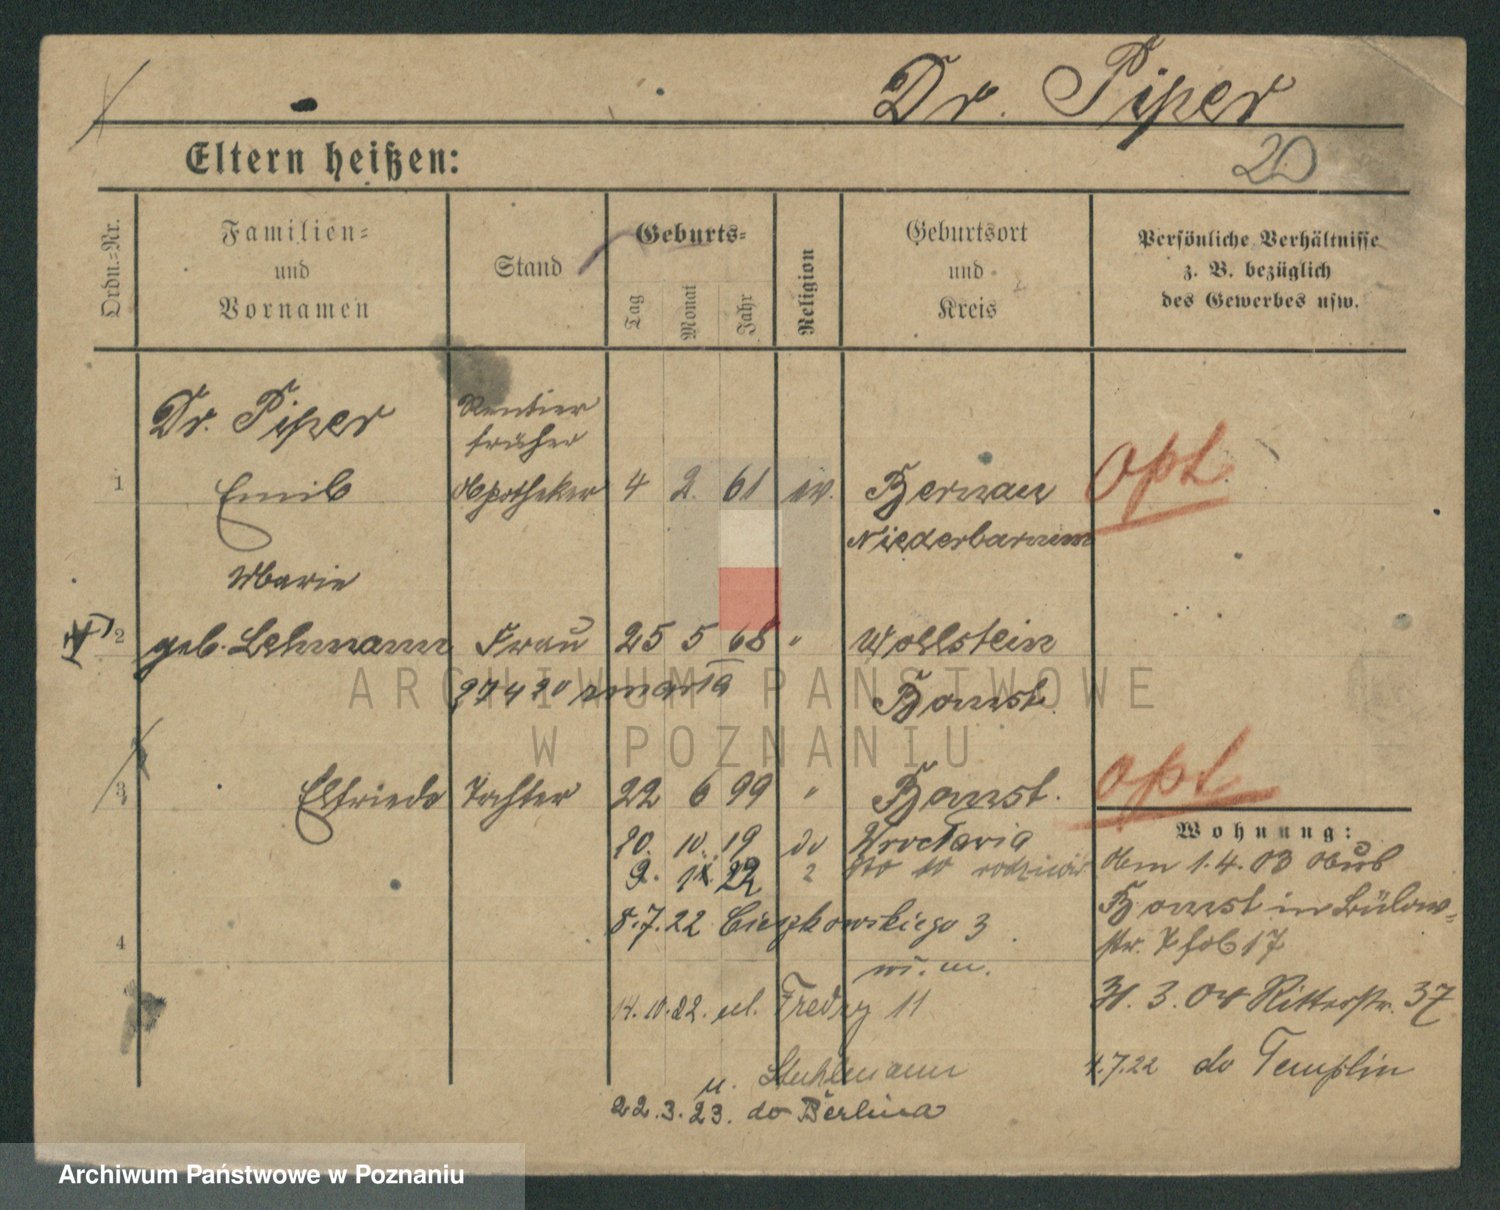 Dr. Piper
20
Eltern heißen:
Ordn.-Nr.
Familien-
und
Vornamen
Stand
Geburts-
Tag
Monat
Jahr
Religion
Geburtsort
und
Kreis
Persönliche Verhältnisse
z. B. bezüglich
des Gewerbes usw.
Dr. Piper
Rentier
früher
1 Emil Apotheker 4 2. 61 ev. Bernau
Opt.
Niederbarnim
Marie
2 geb. Lehmann Frau 25 5 68 " Wollstein
27 4 20 zmarła
Bomst
3 Elfriede Tochter 22 6 99 " Bomst.
opt
20. 10. 19 do Wrocławia
9. IX. 22 z rodziców
8.7.22 Cieszkowskiego 3
4
w. m.
14.10.22. ul. Fredry 11
u. Stuhlmann
22.3.23. do Berlina
Wohnung:
Am 1.4.03
Bomst in Bülow-
str. 7 17
31. 3. 04 Ritterstr. 37
4.7.22 do Templin
ARCHIWUM PAŃSTWOWE
W POZNANIU
Archiwum Państwowe w Poznaniu